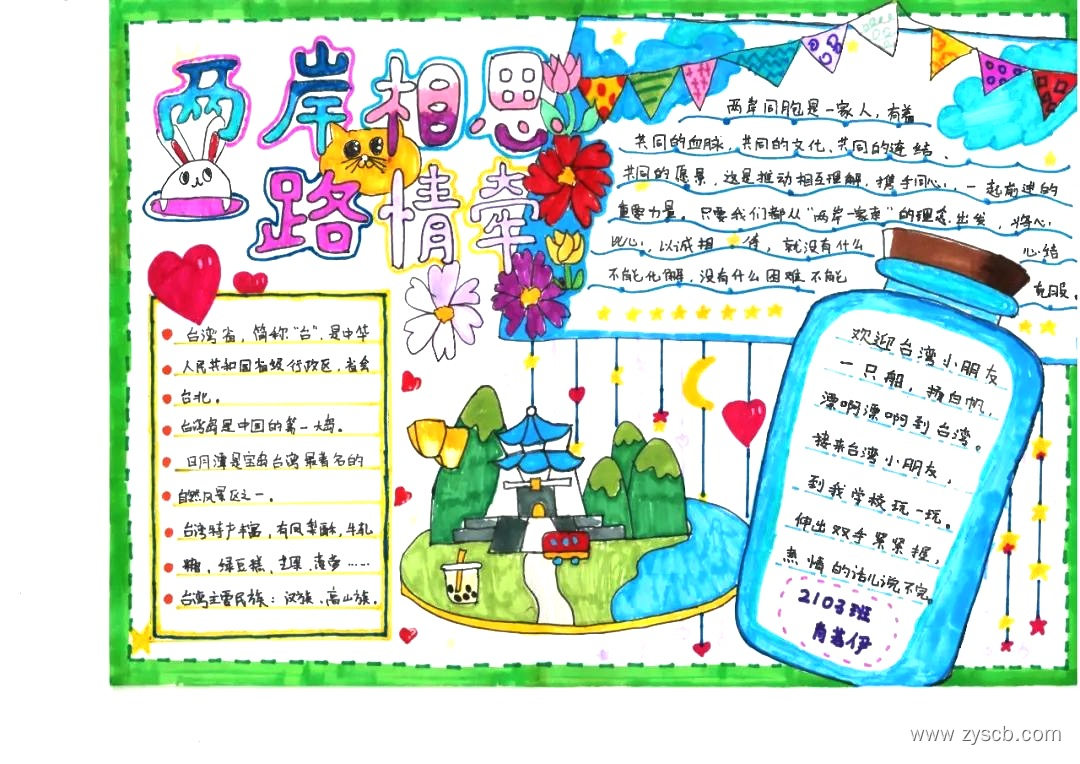 两岸相思
路情牵
两岸同胞是一家人，有着
共同的血脉，共同的文化、共同的连结、
共同的愿景，这是推动相互理解，携手同心，一起前进的
重要力量。只要我们都从“两岸一家亲”的理念出发，将心
比心，以诚相待，就没有什么心结
不能化解，没有什么困难不能克服。
台湾省，简称“台”是中华
人民共和国省级行政区，省会
台北。
台湾岛是中国的第一大岛。
日月潭是宝岛台湾最著名的
自然风景区之一。
台湾特产丰富，有凤梨酥，牛轧
糖，绿豆糕、芒果、
台湾主要民族：汉族、高山族。
欢迎台湾小朋友
一只船，扬白帆，
漂啊漂啊到台湾。
接来台湾小朋友，
到我学校玩一玩。
伸出双手紧紧握，
热情的话儿说不完。
2103班
肖 伊
www.zyscb.com